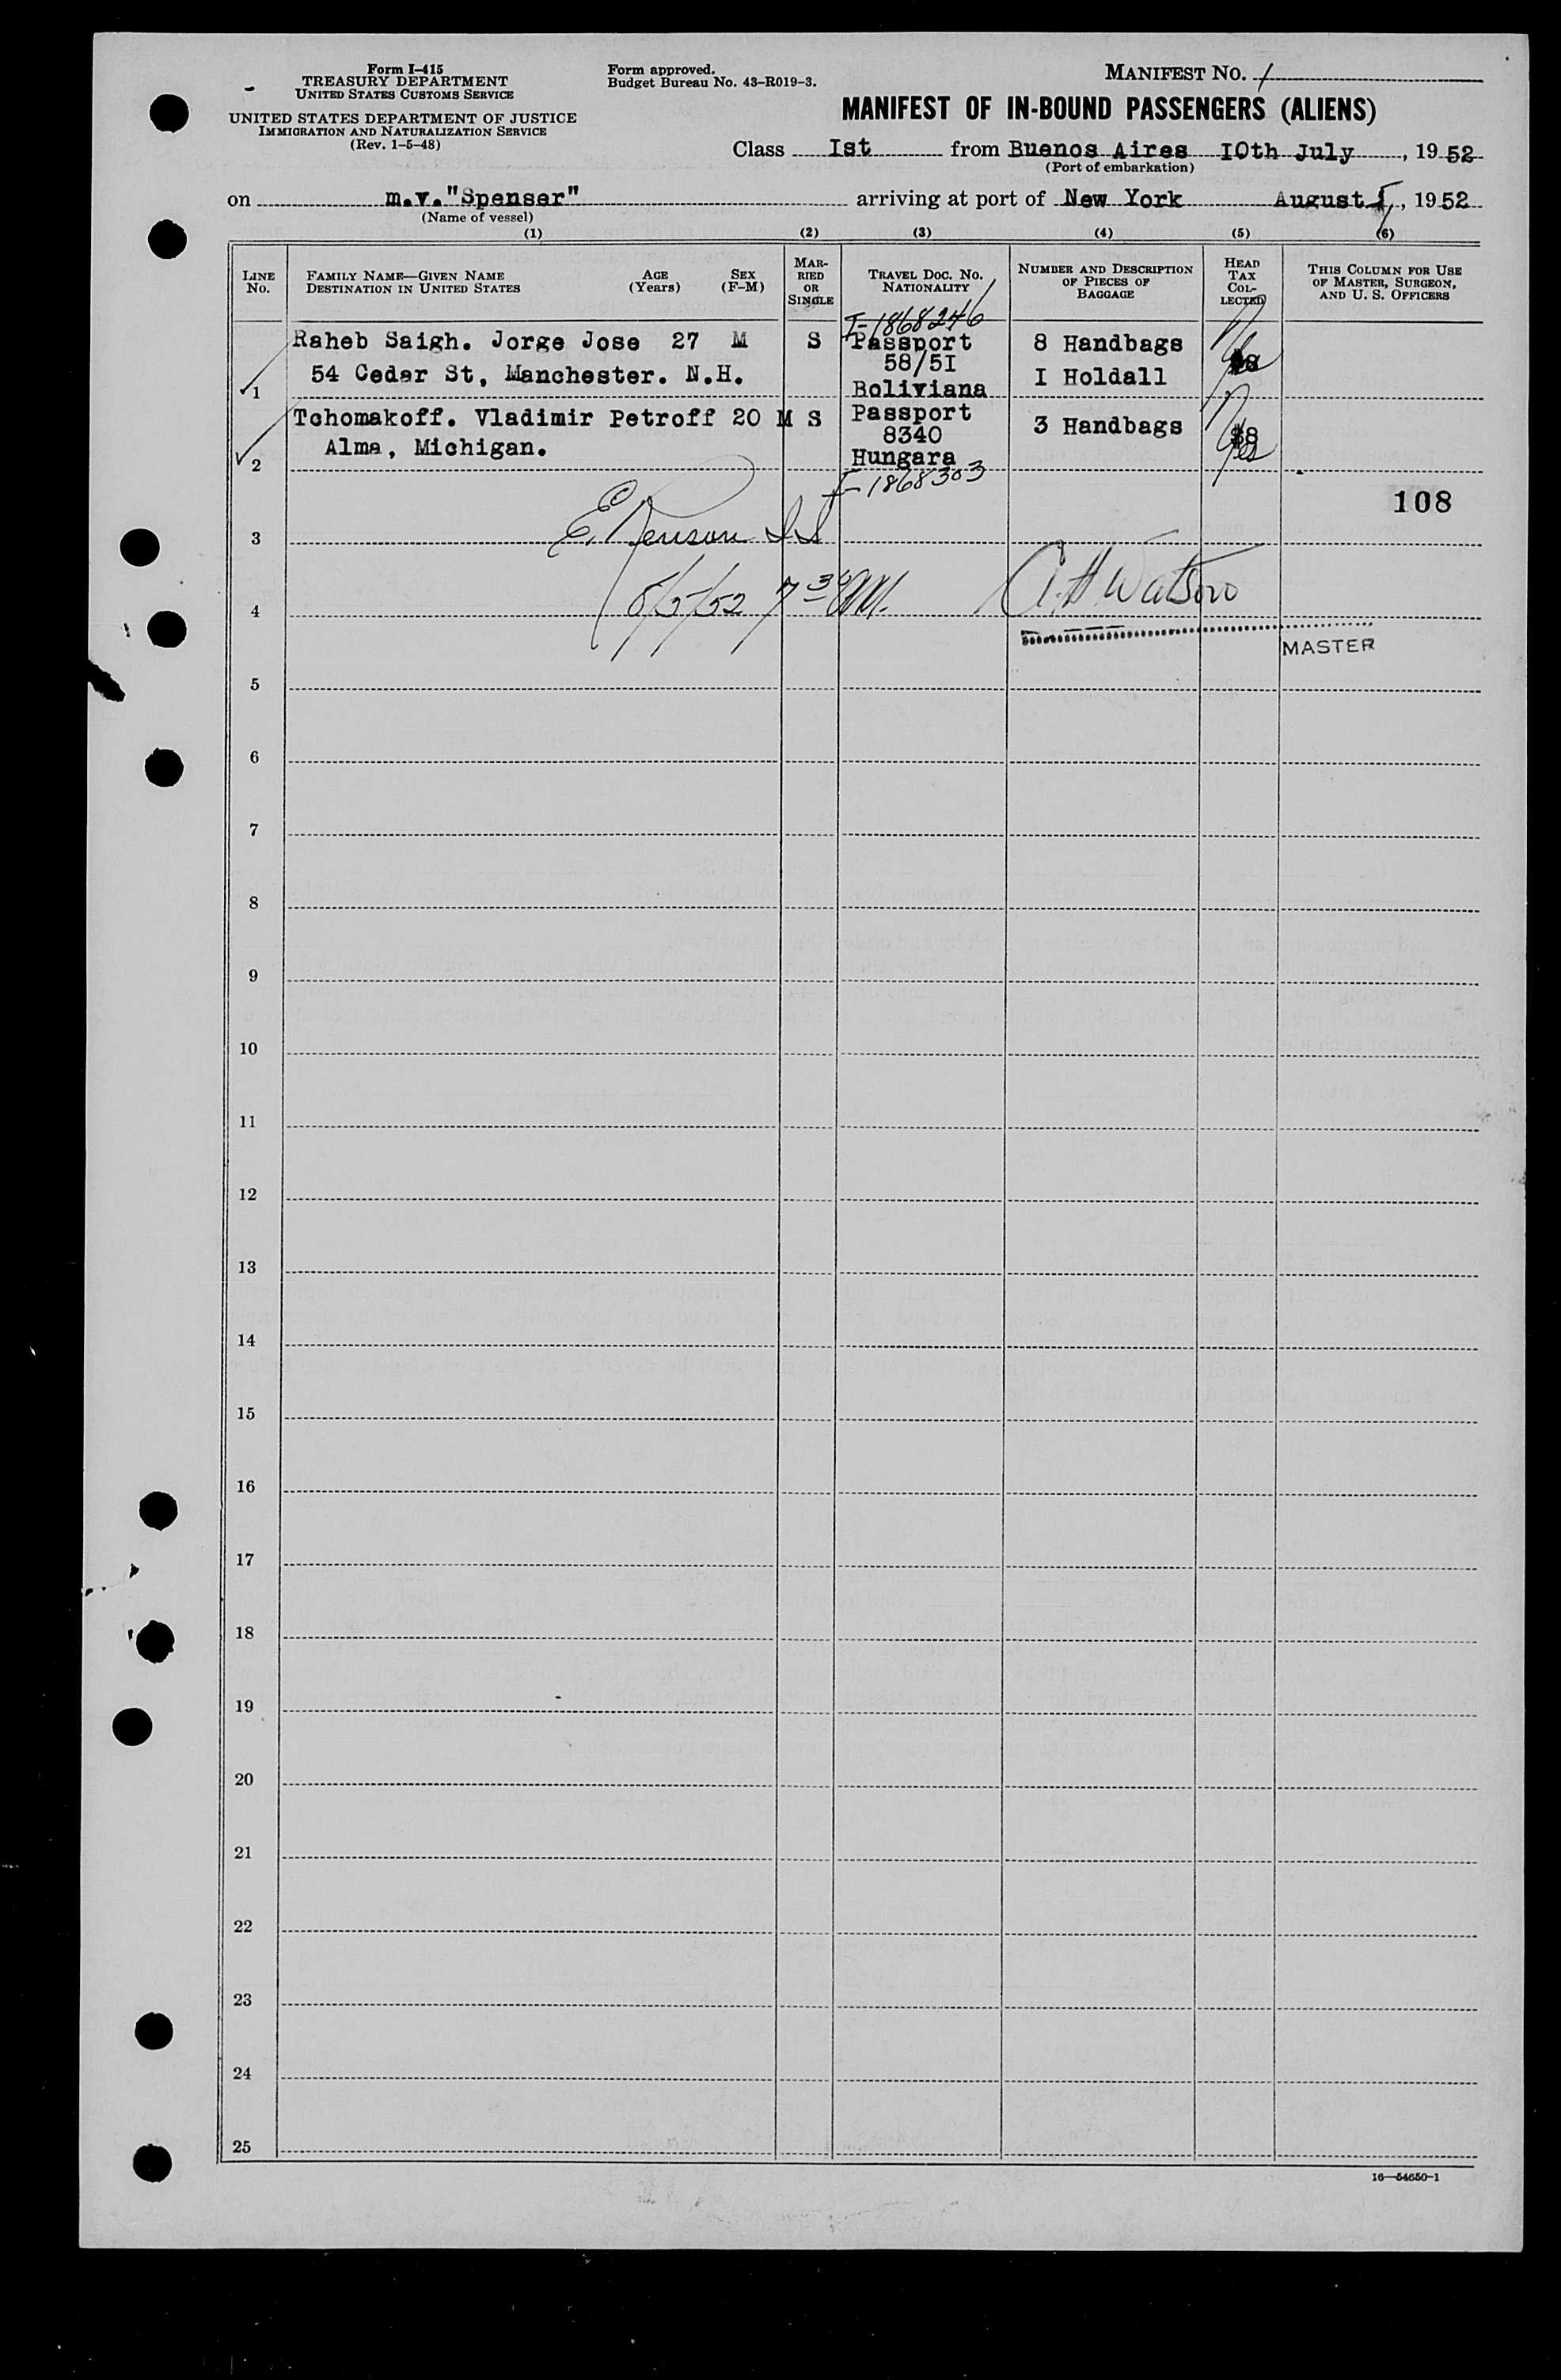 Form I-415
TREASURY DEPARTMENT
UNITED STATES CUSTOMS SERVICE
UNITED STATES DEPARTMENT OF JUSTICE
IMMIGRATION AND NATURALIZATION SERVICE
(Rev. 1-5-48)
Form approved.
Budget Bureau No. 43-R019-3.
MANIFEST NO. 1
MANIFEST OF IN-BOUND PASSENGERS (ALIENS)
Class Ist from Buenos Aires IOth July, 1952
(Port of embarkation)
on m.v. "Spenser" arriving at port of New York August 5, 1952
(Name of vessel)
(1) (2) (3) (4) (5) (6)
LINE NO.
FAMILY NAME—GIVEN NAME
DESTINATION IN UNITED STATES
AGE (Years)
SEX (F-M)
MARRIED OR SINGLE
TRAVEL DOC. NO. NATIONALITY
NUMBER AND DESCRIPTION OF PIECES OF BAGGAGE
HEAD TAX COLLECTED
THIS COLUMN FOR USE OF MASTER, SURGEON, AND U. S. OFFICERS
I-1868246
Raheb Saigh. Jorge Jose 27 M S Passport 8 Handbags
58/5I
54 Cedar St, Manchester. N.H. I Holdall
1 Boliviana
Tchomakoff. Vladimir Petroff 20 M S Passport 3 Handbags $8
8340 Yes
Alma, Michigan.
2 Hungara
I-1868303
108
3
8/5/52 7 30 AM.
A. H Watson
4
MASTER
5
6
7
8
9
10
11
12
13
14
15
16
17
18
19
20
21
22
23
24
25
16—54650-1